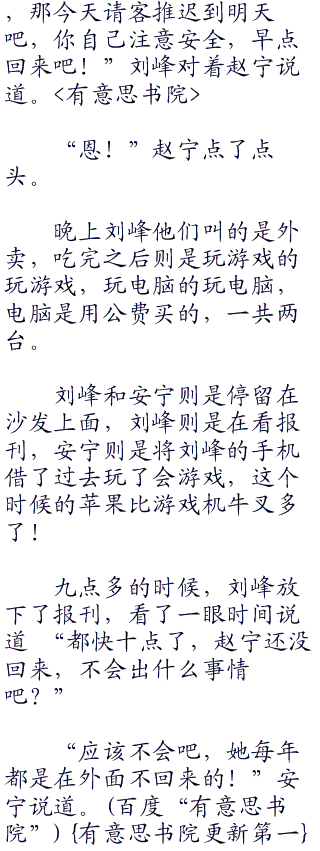 ，那今天请客推迟到明天
吧，你自己注意安全，早点
回来吧！”刘峰对着赵宁说
道。<有意思书院>
“恩！”赵宁点了点
头。
晚上刘峰他们叫的是外
卖，吃完之后则是玩游戏的
玩游戏，玩电脑的玩电脑，
电脑是用公费买的，一共两
台。
刘峰和安宁则是停留在
沙发上面，刘峰则是在看报
刊，安宁则是将刘峰的手机
借了过去玩了会游戏，这个
时候的苹果比游戏机牛叉多
了！
九点多的时候，刘峰放
下了报刊，看了一眼时间说
道　“都快十点了，赵宁还没
回来，不会出什么事情
吧？”
“应该不会吧，她每年
都是在外面不回来的！”安
宁说道。(百度“有意思书
院”){有意思书院更新第一}